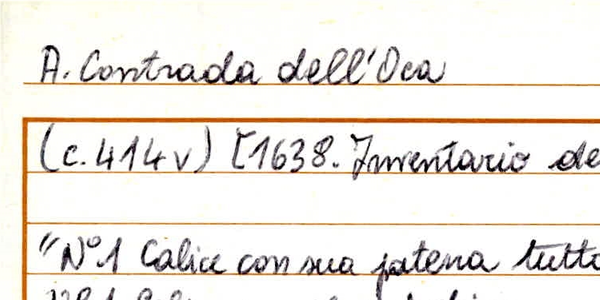 A. Contrada dell'Oca
(c. 414 v) [1638. Inventario de
"N° 1 Calice con sua patena tutto